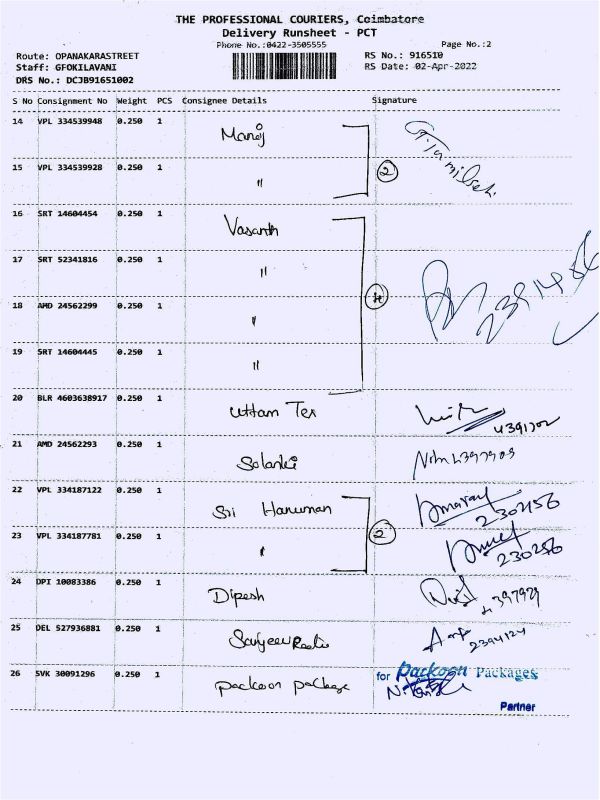 THE PROFESSIONAL COURIERS, Coimbatore
Delivery Runsheet - PCT
Phone No.:0422-3505555 Page No.:2
Route: OPANAKARASTREET RS No.: 916510
Staff: GFOKILAVANI RS Date: 02-Apr-2022
DRS No.: DCJB91651002
S No Consignment No Weight PCS Consignee Details Signature
14 VPL 334539948 0.250 1 Manoj
15 VPL 334539928 0.250 1 " 2
16 SRT 14604454 0.250 1 Vasanth
17 SRT 52341816 0.250 1 "
18 AMD 24562299 0.250 1 " 4
19 SRT 14604445 0.250 1 "
20 BLR 4603638917 0.250 1 Uttam Tex
21 AMD 24562293 0.250 1 Solanki
22 VPL 334187122 0.250 1 Sri Hanuman 2302156
23 VPL 334187781 0.250 1 " 2 230256
24 DPI 10083386 0.250 1 Dipesh
25 DEL 527936881 0.250 1 2394124
26 SVK 30091296 0.250 1 packoon package for Packoon Packages
Partner